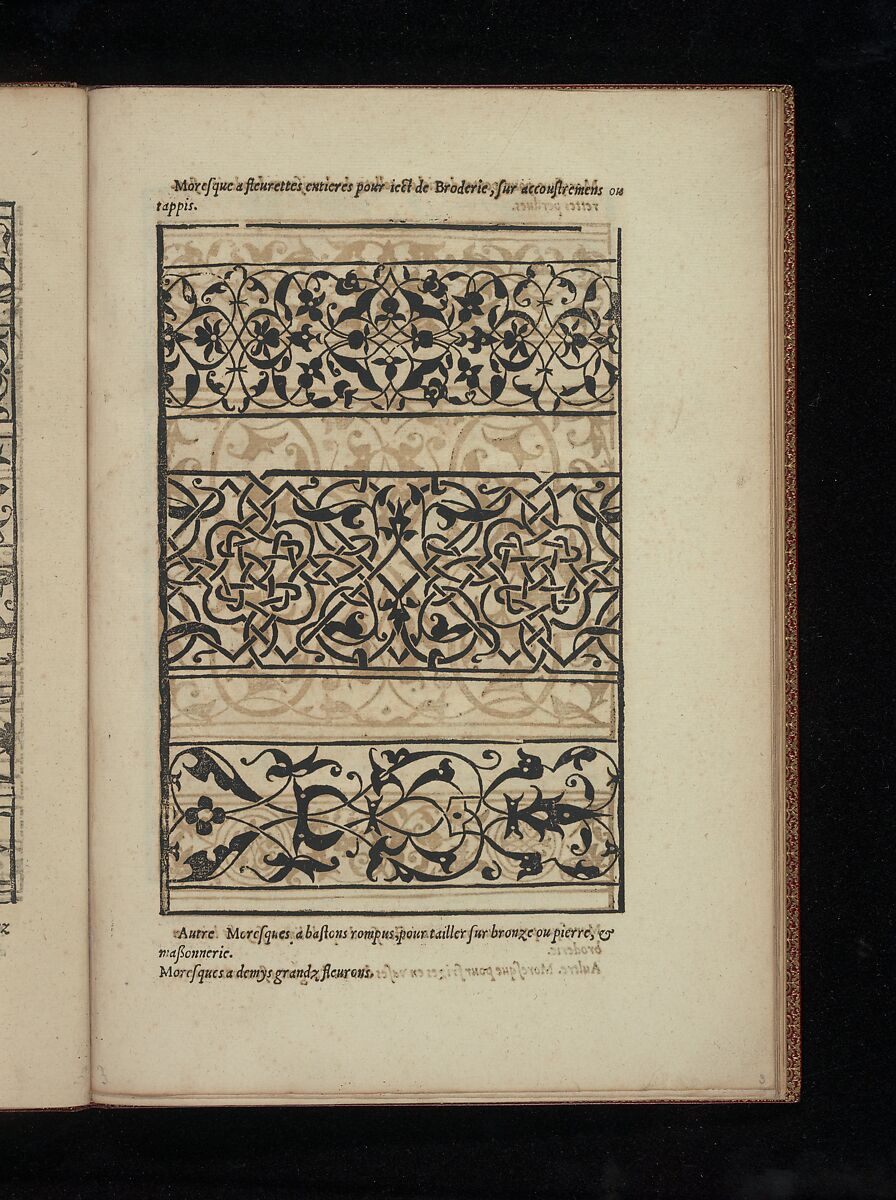 Moresque a fleurettes entieres pour iect de Broderie, sur accoustremens ou
tappis.
Autre Moresques a bastons rompus, pour tailler sur bronze ou pierre, &
maßonnerie.
Moresques a demys grandz fleurons.
3
3